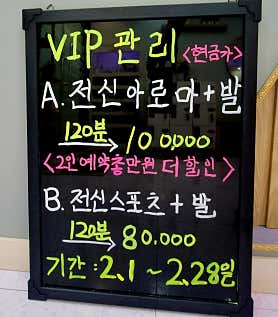 VIP 관리 <현금가>
A. 전신아로마+발
120분 100,000
<2인 예약총만원 더 할인>
B. 전신스포츠+발
120분 80.000
기간 : 2.1 ~ 2.28일